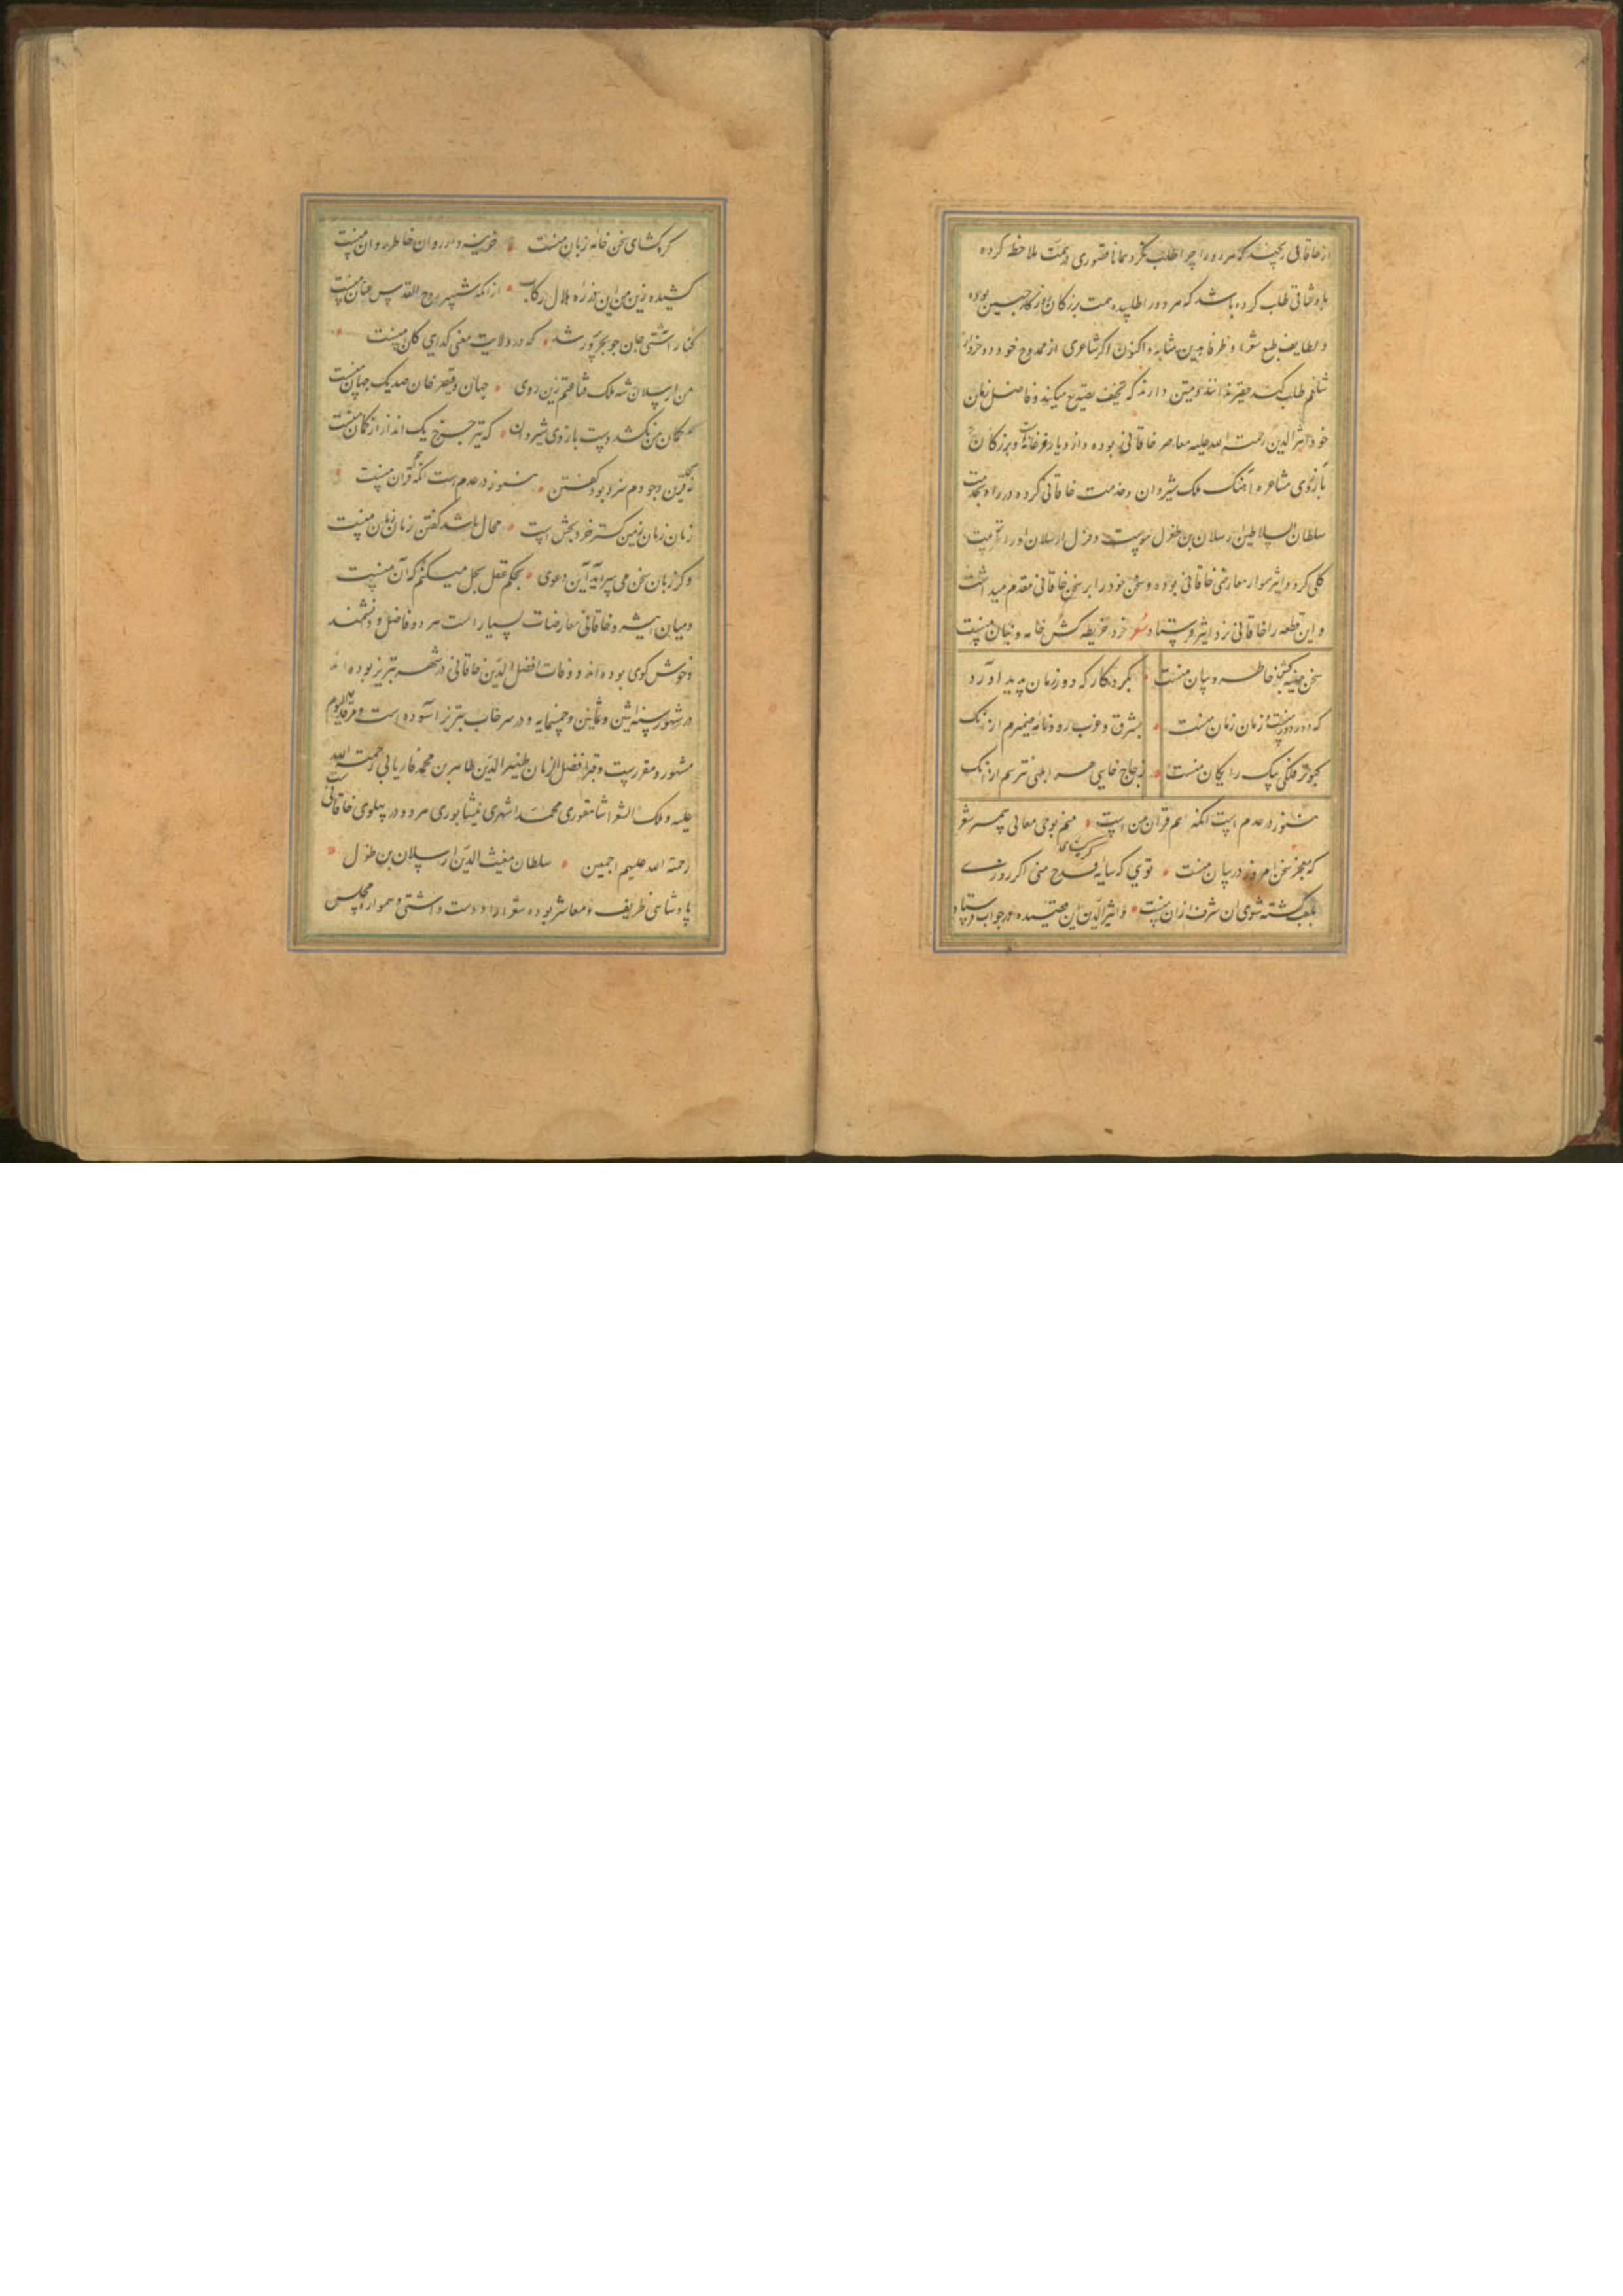 از خاقانی رنجید که هر دو را چرا طلب نکرد همانا قصوری در همت ملاحظه کرده
یا وشاقی طلب کرده باشد که هر دو را طلبیده همت بزرگان روزگار چنین بوده
و لطایف طبع شعرا و ظرفا بدین مثابه و اکنون اگر شاعری از ممدوح خود دو خروار
شلغم طلب کند حقیر ندانند و منتی دارند که تخفیف تصدیع میکند و فاضل زمان
خود اثیرالدین رحمت الله علیه معاصر خاقانی بوده و از دیار فرغانه است و بزرگان
بآرزوی مشاعره آهنگ ملک شیروان و خدمت خاقانی کرده در راه بخدمت
سلطان السلاطین ارسلان بن طغرل پیوست و قزل ارسلان او را تربیت
کلی کرد و اثیر هموار معارض خاقانی بوده و سخن خود را بر سخن خاقانی مقدم میداشت
و این قطعه را خاقانی نزد اثیر فرستاده شعر خرد خریطه کش خامه و بنان منست
سخن جنیبه کش خاطر و بیان منست بکردگار که دور زمان پدید آورد
که دور دور منست و زمان زمان منست بشرق و غرب رود نامه ضمیرم از آنک
کبوتر فلکی پیک رایگان منست ز جاج خایی هر ابلهی نترسم از آنک
هنوز در عدم است انکه هم قران من است منم بوحی معانی پیمبر شعر
که معجز سخن امروز در بیان منست تویی که سایه فرح منی اگر روزی
بلقب گشته شوی ان شرف از ان منست و اثیرالدین این قصیده در جواب فرستاد
گره گشای سخن خامه زبان منست خزینه دار روان خاطر روان منست
کشیده زین من این نقره هلال رکاب از انکه شهپر روح القدس عنان منست
کنار اشتی جان جو بحر پور شد که در ولایت معنی گدای کان منست
من ارسلان شه ملک قناعتم زین روی جهان و قیصر خان صد یک جهان منست
کمان من نکشد دست بازوی شیروان که تیر چرخ یک انداز از کمان منست
نه قرین وجودم سزد بود گفتن هنوز در عدم است انکه قران منست
زمان زمان زمین گستر خرد بخش است محال باشد گفتن زمان زمان منست
و گر زبان سخن می سراید این دعوی بحکم عقل بحل میکنم که آن منست
و میان اثیر و خاقانی معارضات بسیار است هر دو فاضل و دانشمند
و خوش گوی بوده اند و وفات افضل الدین خاقانی در شهر تبریز بوده
در شهور سنه اثنین و ثمانین و خمسمایه و در سرخاب تبریز آسوده است و مرقد الیوم
مشهور و مقررست و قبر افضل الزمان ظهیرالدین طاهر بن محمد فاریابی رحمت الله
علیه و ملک الشعرا شاهفوری محمد اشهری نیشابوری هر دو در پهلوی خاقانی است
رحمة الله علیهم اجمعین سلطان مغیث الدین ارسلان بن طغرل
پادشاهی ظریف و معاشر بوده شعرا را دوست داشتی و هموار مجلس